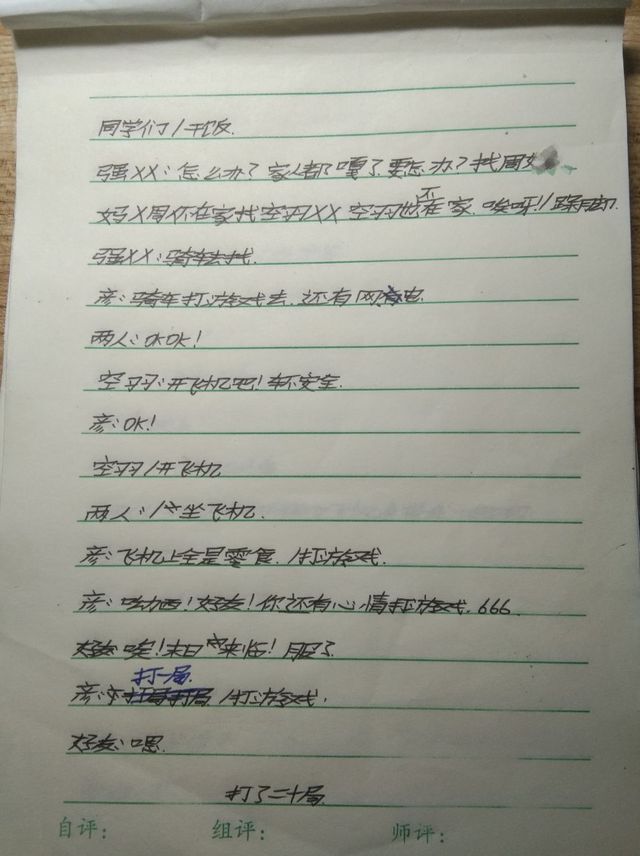 同学们/干饭.
强XX:怎么办?家人都嘎了要怎办?找周
妈X周不在家找空羽XX空羽也不在家.唉呀!!跺脚
强XX:骑车去找.
彦:骑车打游戏去.还有网有电
两人:OKOK!
空羽:开飞机吧!车不安全.
彦:OK!
空羽/开飞机
两人:/坐飞机.
彦:飞机上全是零食./打游戏.
彦:呦西!好友!你还有心情打游戏.666
好友:唉!末日来临!服了
打一局.
彦: /打游戏.
好友:嗯.
打了二十局.
自评: 组评: 师评: